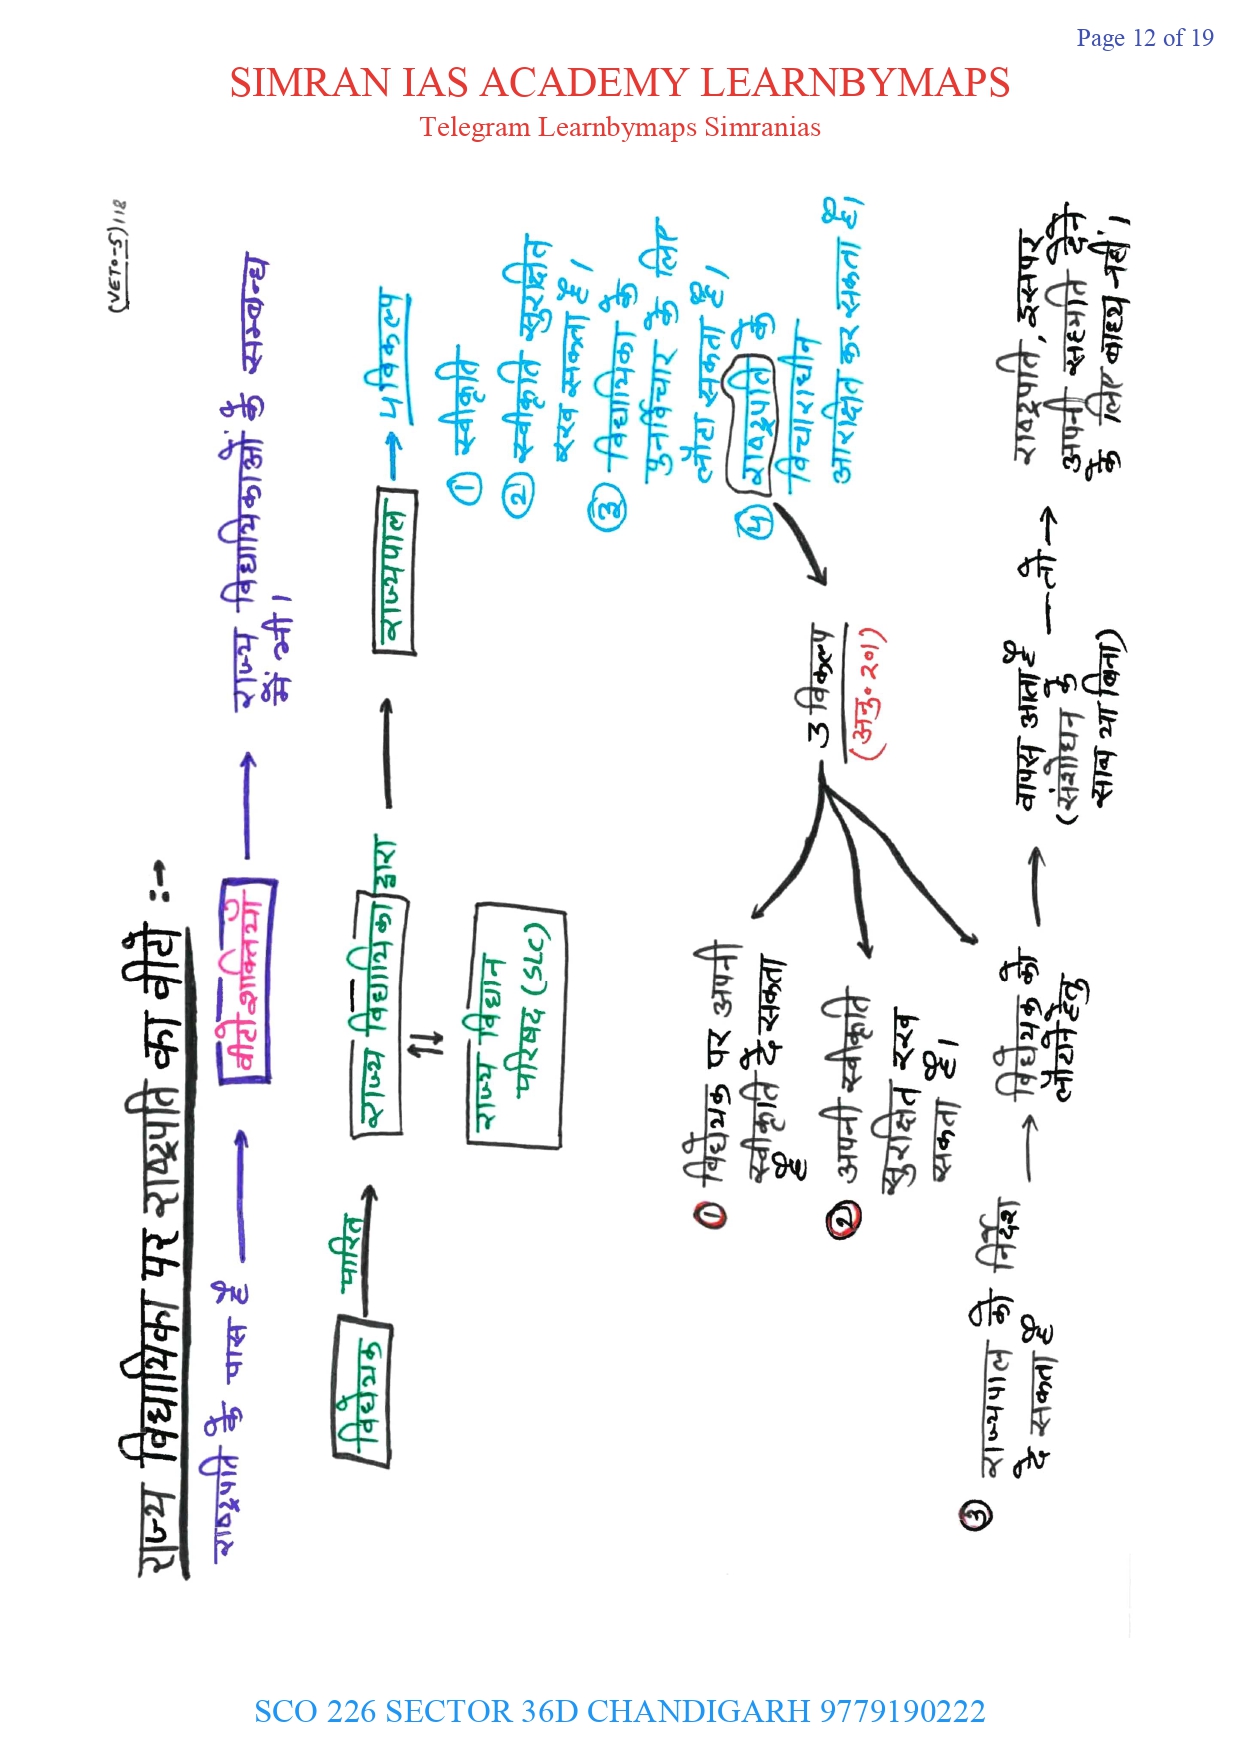 Page 12 of 19
SIMRAN IAS ACADEMY LEARNBYMAPS
Telegram Learnbymaps Simranias
(VETO-5) 118
राज्य विधायिका पर राष्ट्रपति का वीटो :→
राष्ट्रपति के पास है → वीटो शक्तियाँ → राज्य विधायिकाओं के सम्बन्ध
में भी।
विधेयक पारित → राज्य विधायिका द्वारा → राज्यपाल → 4 विकल्प
⇅
राज्य विधान
परिषद (SLC)
① स्वीकृति
② स्वीकृति सुरक्षित
रख सकता है।
③ विधायिका के
पुनर्विचार के लिए
लौटा सकता है।
④ राष्ट्रपति के
विचाराधीन
आरक्षित कर सकता है।
3 विकल्प
(अनु॰ 201)
① विधेयक पर अपनी
स्वीकृति दे सकता
है
② अपनी स्वीकृति
सुरक्षित रख
सकता है।
③ राज्यपाल को निर्देश
दे सकता है
→ विधेयक को
लौटाने हेतु
→ वापस आता है
(संशोधन के
साथ या बिना)
— तो →
राष्ट्रपति, इसपर
अपनी सहमति देने
के लिए बाध्य नहीं।
SCO 226 SECTOR 36D CHANDIGARH 9779190222